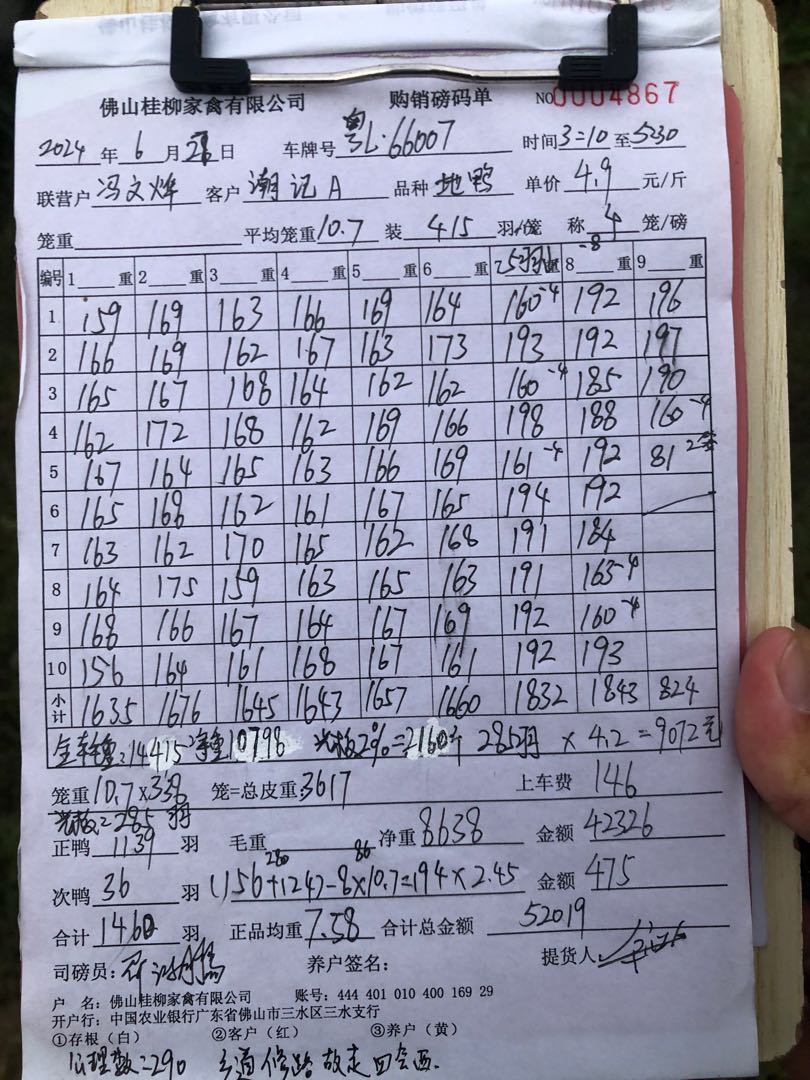 佛山桂柳家禽有限公司 购销磅码单 NO 0004867
2024 年 6 月 28 日 车牌号 粤L·66007 时间 3=10 至 5=30
联营户 冯文烨 客户 潮记A 品种 地鸭 单价 4.9 元/斤
笼重 平均笼重 10.7 装 415 羽/笼 称 4 笼/磅
编号 1 重 2 重 3 重 4 重 5 重 6 重 重 8 -8 重 9 重
1 159 169 163 166 169 164 160-4 192 196
2 166 169 162 167 163 173 193 192 197
3 165 167 168 164 162 162 160-4 185 190
4 162 172 168 162 169 166 198 188 160-4
5 167 164 165 163 166 169 161-4 192 81
6 165 168 162 161 167 165 194 192
7 163 162 170 165 162 168 191 184
8 164 175 159 163 165 163 191 163-4
9 168 166 167 164 167 169 192 160-4
10 156 164 161 168 167 161 192 193
小计 1635 1676 1645 1643 1657 1660 1832 1843 824
14415 净重10798 2%=2160斤 285羽 × 4.2 = 9072元
笼重 10.7×338 笼=总皮重 3617 上车费 146
=285羽
正鸭 1139 羽 毛重 净重 8638 金额 42326
280 86
次鸭 36 羽 (156+124)-8×10.7=194×2.45 金额 475
合计 1460 羽 正品均重 7.58 合计总金额 52019
司磅员: 养户签名: 提货人
户 名: 佛山桂柳家禽有限公司 账号: 444 401 010 400 169 29
开户行: 中国农业银行广东省佛山市三水区三水支行
①存根(白) ②客户(红) ③养户(黄)
公里数=290 乡道修路 故走四会西.